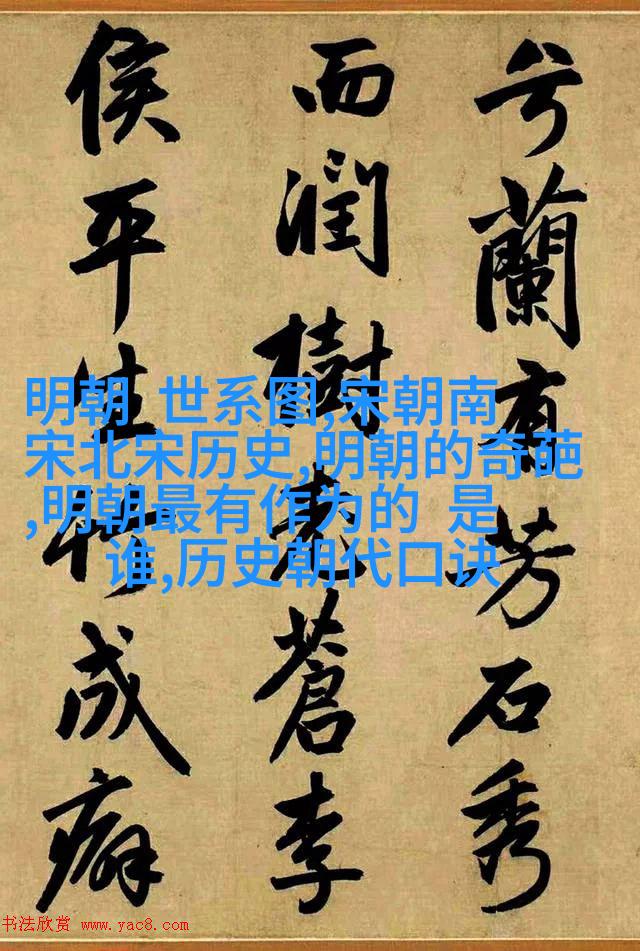 兮蘭有芳石秀
而潤樹老蒼李
侯平生竹成癖
明朝 世系图,宋朝南
宋北宋历史,明朝的奇葩
,明朝最有作为的 是
谁,历史朝代口诀
书法欣赏 www.yac8.com